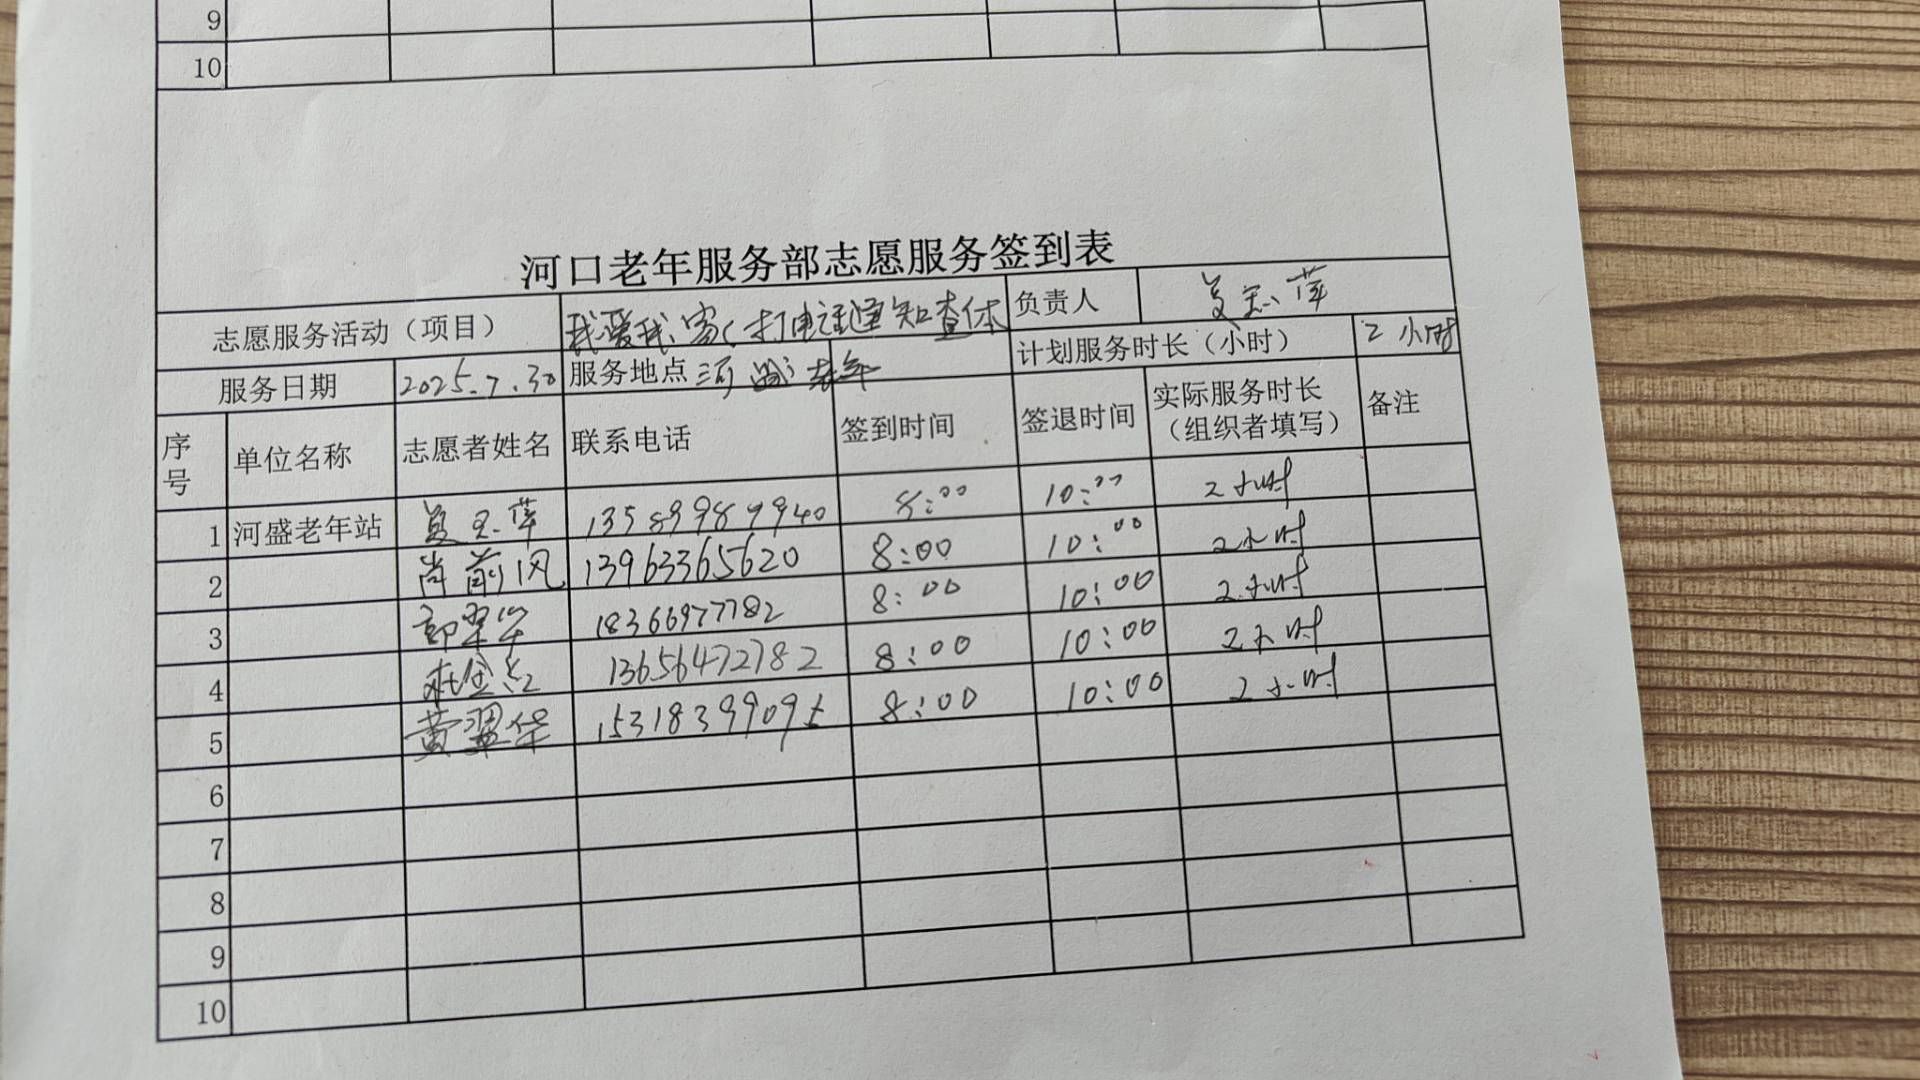 9
10
河口老年服务部志愿服务签到表
志愿服务活动（项目） 我爱我家（打电话通知查体 负责人
服务日期 2025.7.30 服务地点 河 老年 计划服务时长（小时） 2小时
序号 单位名称 志愿者姓名 联系电话 签到时间 签退时间 实际服务时长（组织者填写） 备注
1 河盛老年站 13589989940 8:00 10:00 2小时
2 尚前风 13963365620 8:00 10:00 2小时
3 18366977782 8:00 10:00 2小时
4 杜金红 13656472782 8:00 10:00 2小时
5 黄翠华 15318399095 8:00 10:00 2小时
6
7
8
9
10